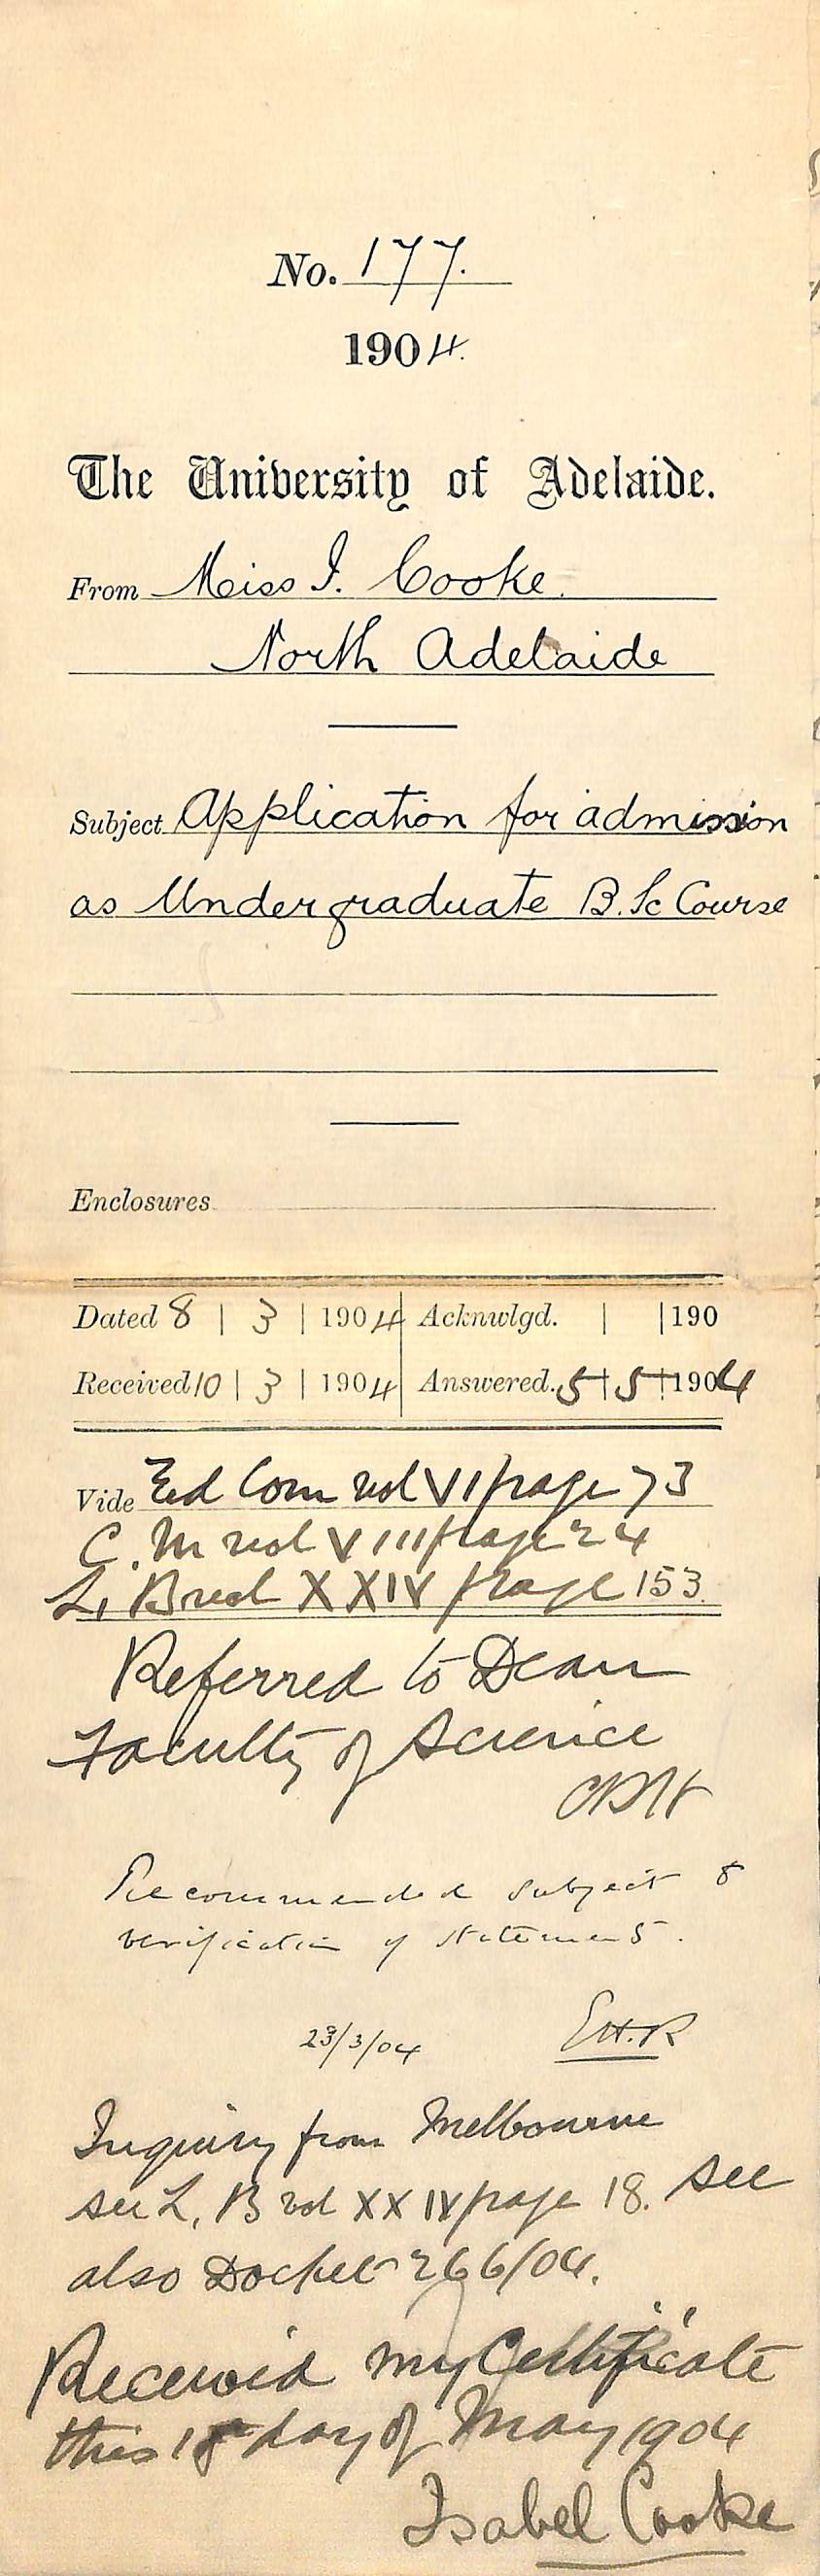 No. 177.
1904.
The University of Adelaide.
From Miss I. Cooke.
North Adelaide
Subject Application for admission
as Undergraduate B. Sc Course
Enclosures
Dated 8 | 3 | 1904 Acknwlgd. | | 190
Received 10 | 3 | 1904 Answered. 5 | 5 | 1904
Vide Ed Com vol VI page 73
C. M vol VIII page 24
L. B vol XXIV page 153.
Referred to Dean
Faculty of Science
Recommended subject to
verification of statements.
23/3/04 E.H.R
Inquiry from Melbourne
see L. B vol XXIV page 18. see
also Docket 266/04.
Received my Certificate
this day of May 1904
Isabel Cooke